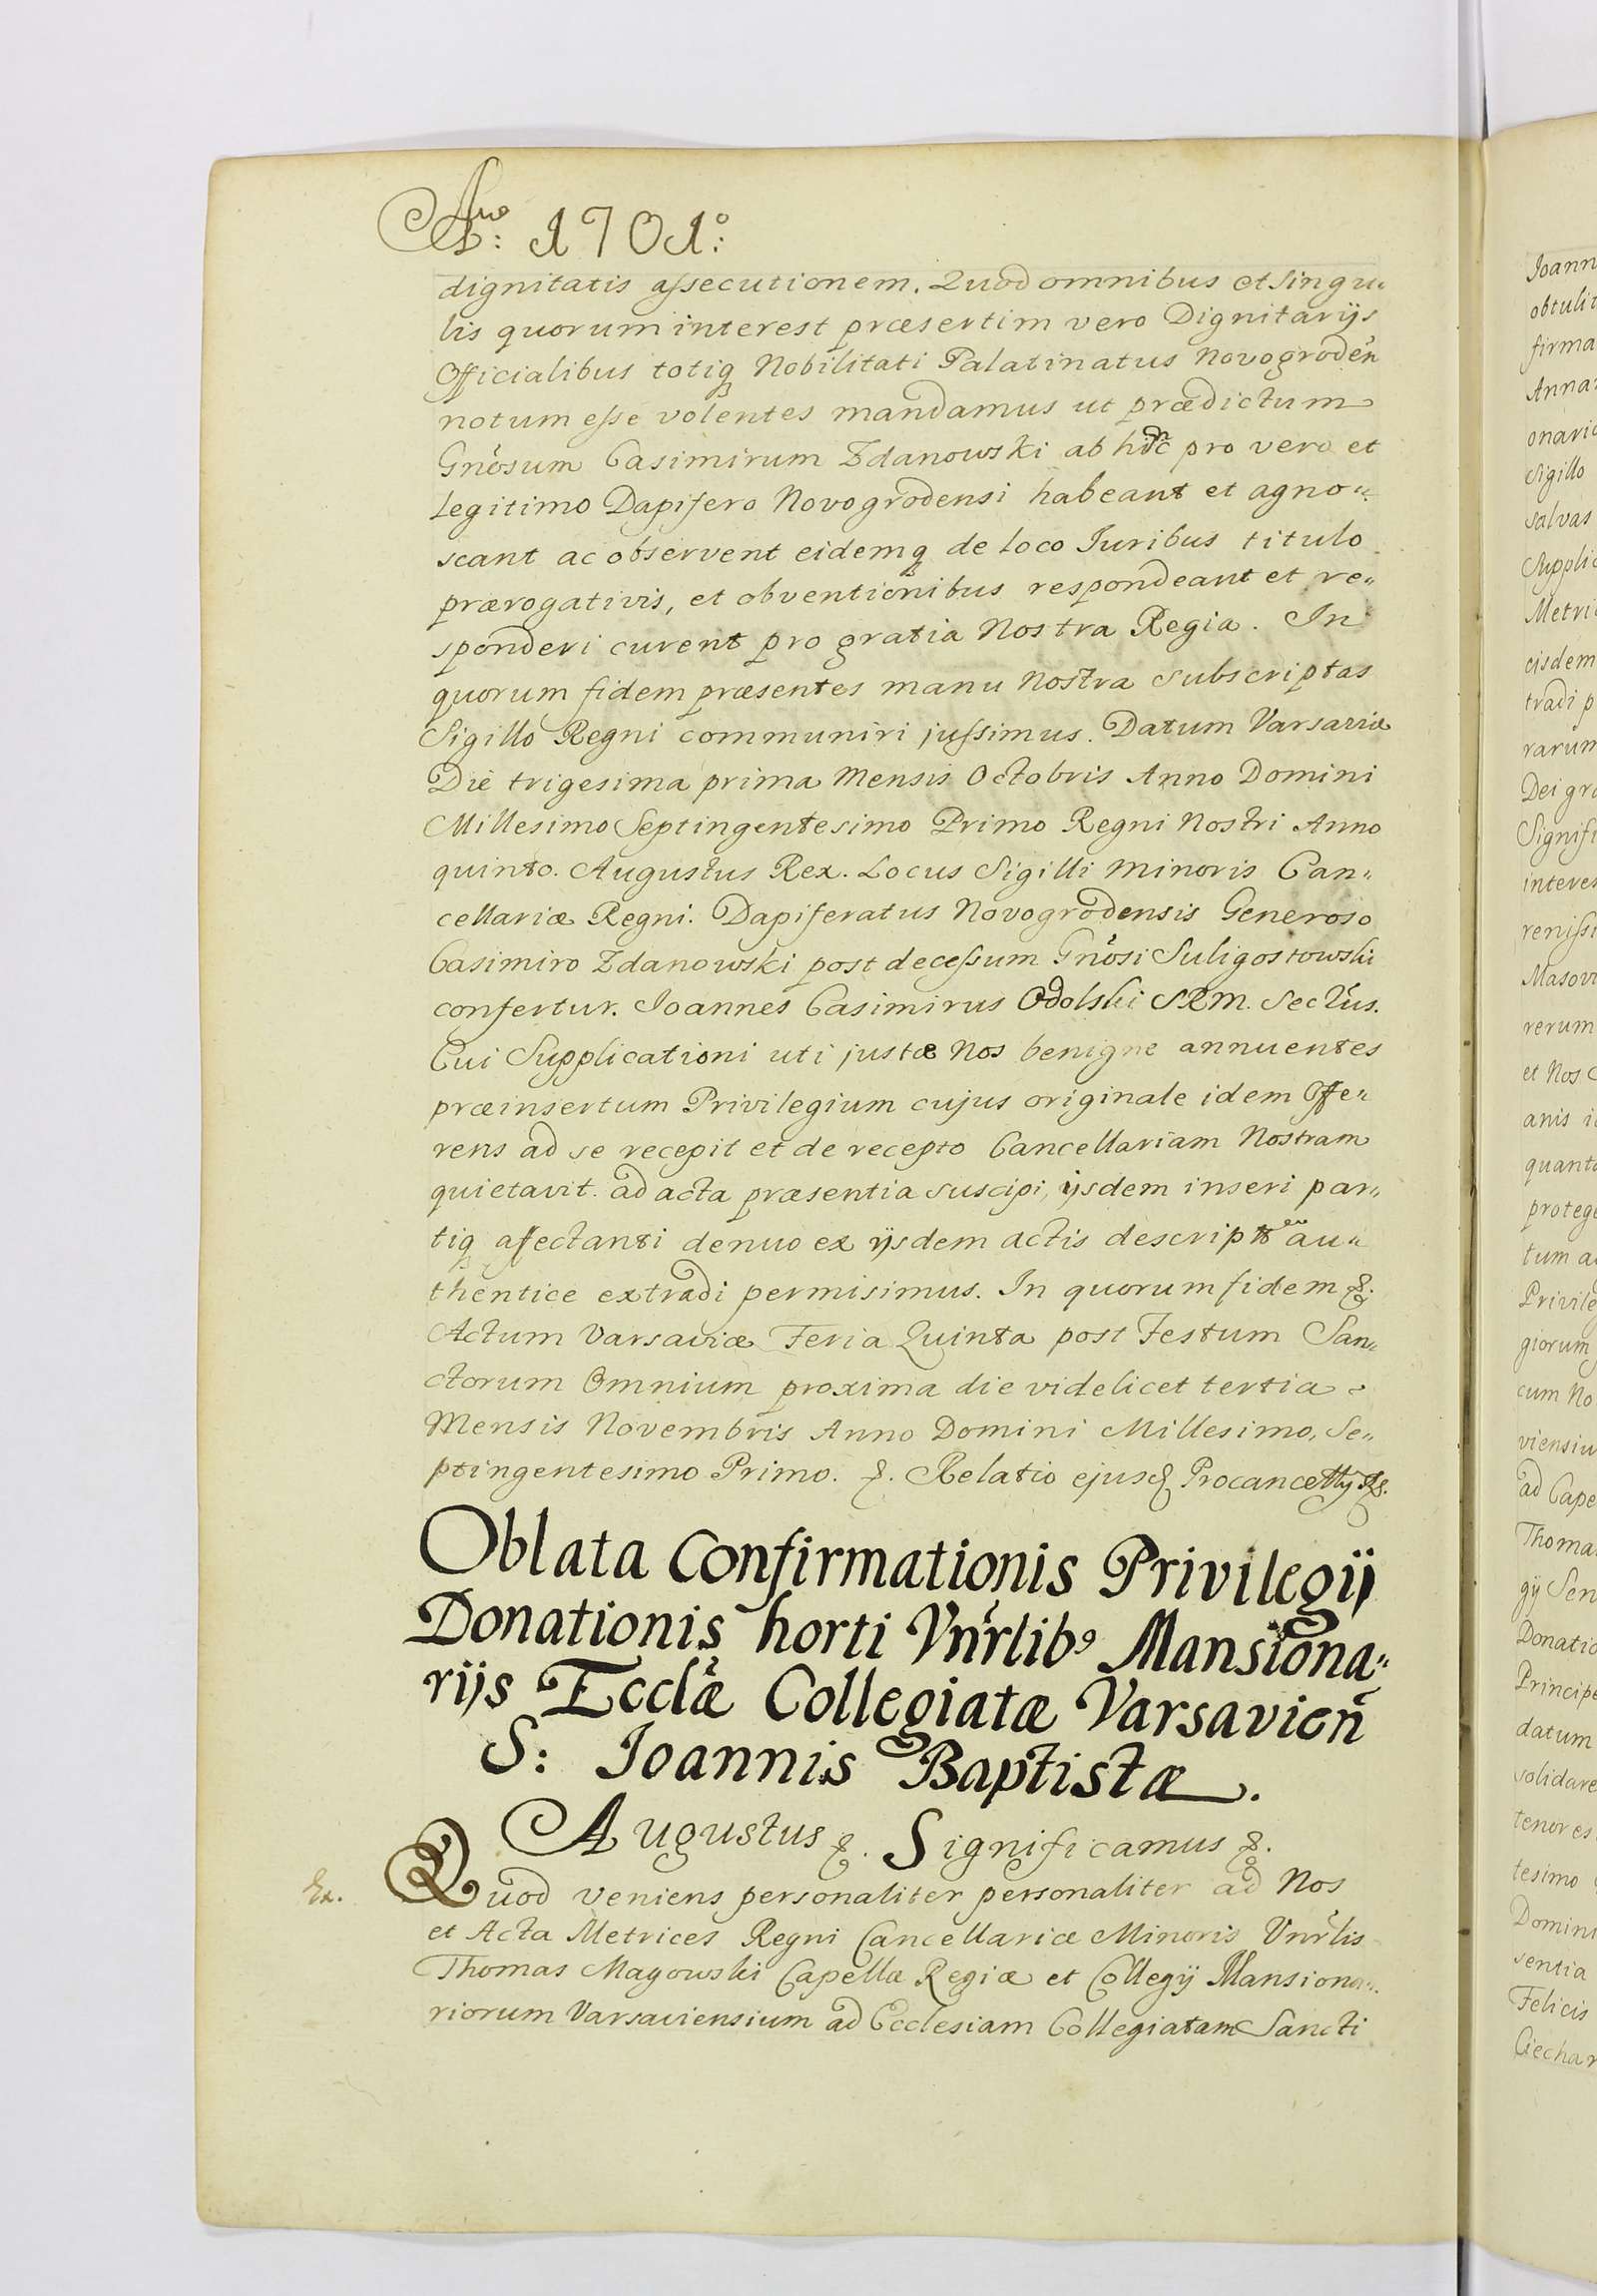 Ao: 1701o:
dignitatis assecutionem. Quod omnibus et singu„
lis quorum interest præsertim vero Dignitarijs
Officialibus totiq₃ Nobilitati Palatinatus Novogrodeń
notum esse volentes mandamus ut prædictum
Gnösum Casimirum Zdanowski ab hinc pro vero et
legitimo Dapifero Novogrodensi habeant et agno„
scant ac observent eidemq₃ de loco Juribus titulo
prærogativis, et obventionibus respondeant et re„
sponderi curent pro gratia Nostra Regia. In
quorum fidem præsentes manu Nostra subscriptas
Sigillo Regni communiri jussimus. Datum Varsaviæ
Die trigesima prima Mensis Octobris Anno Domini
Millesimo Septingentesimo Primo Regni Nostri Anno
quinto. Augustus Rex. Locus Sigilli Minoris Can„
cellariæ Regni. Dapiferatus Novogrodensis Generoso
Casimiro Zdanowski post decessum Gnösi Suligostowski
confertur. Joannes Casimirus Odolski SRM. Sectüs.
Cui Supplicationi uti justæ Nos benigne annuentes
præinsertum Privilegium cujus originale idem Offe„
rens ad se recepit et de recepto Cancellariam Nostram
quietavit. ad acta præsentia suscipi, ijsdem inseri par„
tiq₃ affectanti denuo ex ijsdem actis descriptum au„
thentice extradi permisimus. In quorum fidem &.
Actum Varsaviæ Feria Quinta post Festum San„
ctorum Omnium proxima die videlicet tertia
Mensis Novembris Anno Domini Millesimo, Se„
ptingentesimo Primo. &. Relatio ejusd Procancellrij &.
Oblata Confirmationis Privilegij
Donationis horti Vnrlib9 Mansiona„
rijs Ecclæ Collegiatæ Varsavień
S: Joannis Baptistæ.
Augustus &. Significamus &.
Ex.
Quod veniens personaliter personaliter ad Nos
et Acta Metrices Regni Cancellariæ Minoris Vnrlis
Thomas Magowski Capellæ Regiæ et Collegij Mansiona„
riorum Varsaviensium ad Ecclesiam Collegiatam Sancti
Joann
obtulit
firma
Anna
onario
Sigillo
salvas
Supplic
Metri
eisdem
tradi p
rarum
Dei gra
Signifi
interes
renissi
Masovi
rerum
et Nos
anis i
quanto
protege
tum a
Privile
giorum
cum No
viensiu
ad Cape
Thoma
gij Sen
Donatio
Principe
datum
solidare
tenor es
tesimo
Domini
sentia
Felicis
Ciechar